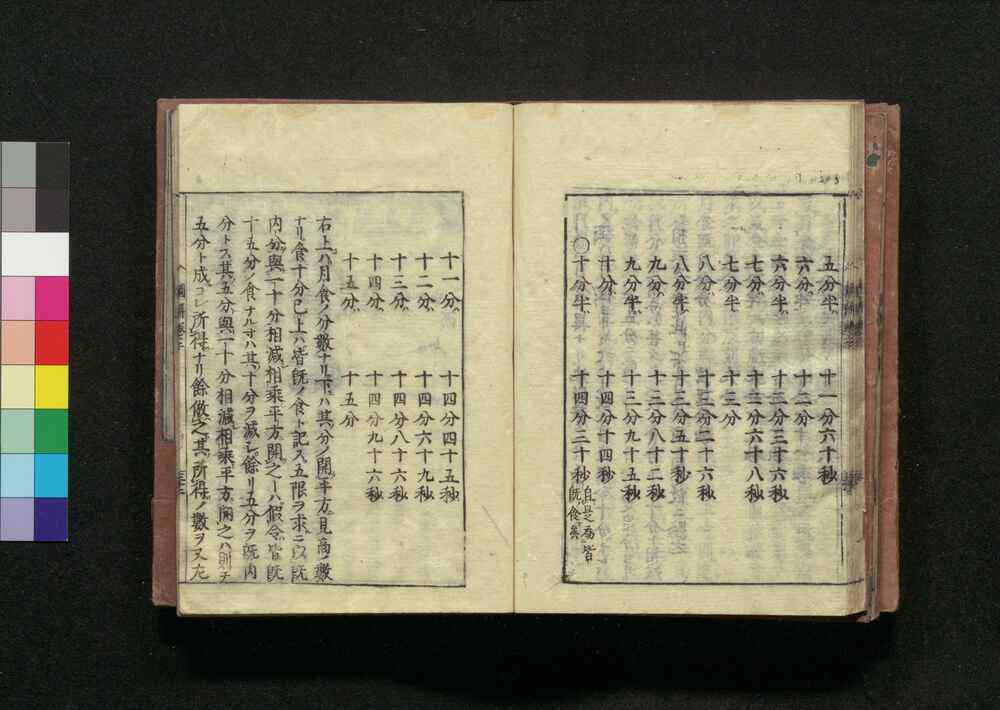 五分半 十一分六十秒
六分 十二分
六分半 十二分三十六秒
七分半 十二分六十八秒
七分半 十三分
八分 十三分二十六秒
八分半 十三分五十秒
九分 十三分八十二秒
九分半 十三分九十五秒
十分 十四分十四秒
〇十分半 十四分三十秒 自是為皆既食矣
十一分 十四分四十五秒
十二分 十四分六十九秒
十三分 十四分八十六秒
十四分 十四分九十六秒
十五分 十五分
右上ハ月食ノ分數ナリ下ハ其分ノ開平方見商ノ數
ナリ食十分已上ハ皆既ノ食ト記ス五限ヲ求ニハ既
内分與一十分相減相乘平方開之ハ假令皆既
十五分ノ食ナルキハ其十分ヲ減シ餘リ五分ヲ既内
分トス其五分與一十分相減相乘平方開之ハ則チ
五分ト成コレ所得ナリ餘倣之其所得ノ數ヲ又左